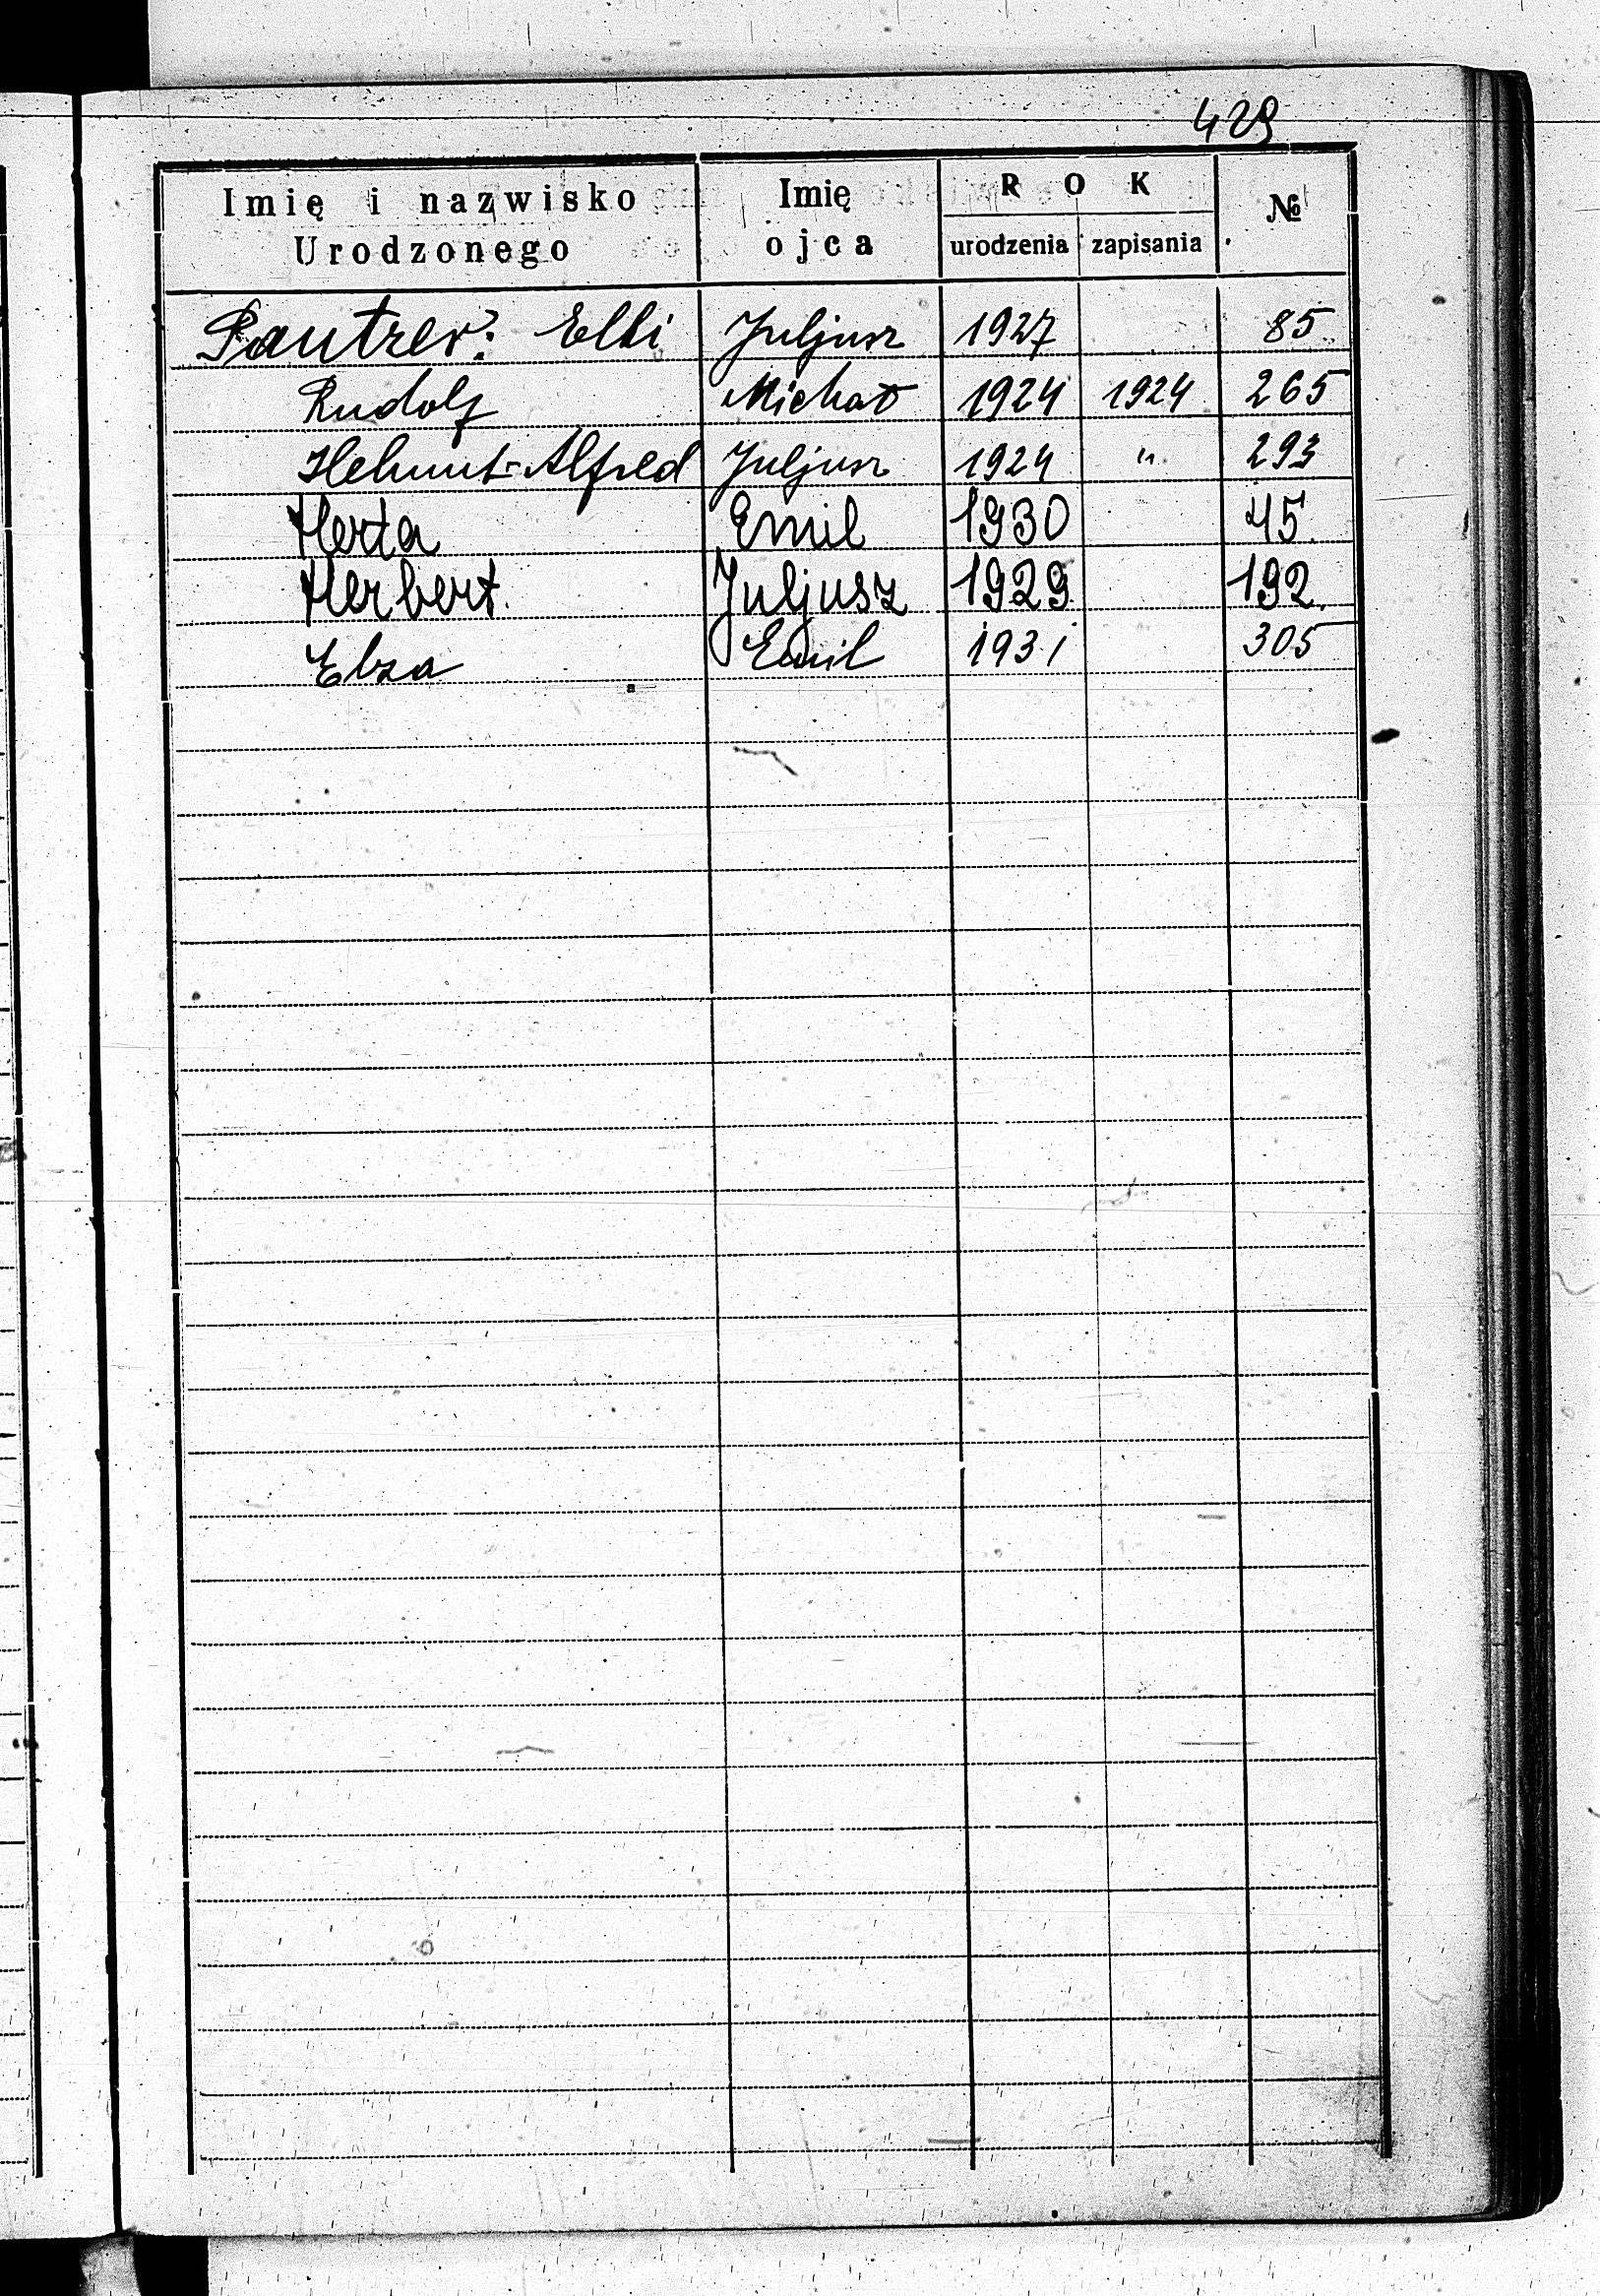 429
Imię i nazwisko Urodzonego | Imię ojca | ROK urodzenia | zapisania | №
Pautzer: Elli Juljusz 1927 85
Rudolf Michał 1924 1924 265
Helmut-Alfred Juljusz 1924 " 293
Herta Emil 1930 45.
Herbert. Juljusz 1929 192.
Elza Emil 1931 305